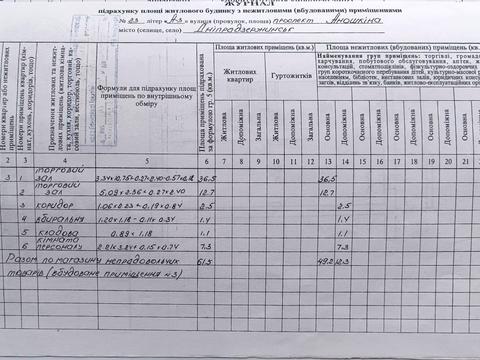 ЖУРНАЛ
підрахунку площі житлового будинку з нежитловими (вбудованими) приміщеннями
№ 23 літер А-3 вулиця (провулок, площа) проспект Аношкіна
місто (селище, село) Дніпродзержинськ
Номери квартир або нежитлових приміщень
Номери приміщень квартир (кімнат, кухонь, коридорів, тощо)
Призначення житлових та нежитлових приміщень (житлова кімната, кухня, коридор, торговий, касовий зали, вестибюль, тощо)
Формули для підрахунку площ приміщень по внутрішньому обміру
Площа приміщень підрахована за формулою гр. 5 (кв.м.)
Площа житлових приміщень (кв.м.)
Житлових квартир
Гуртожитків
Площа нежитлових (вбудованих) приміщень (кв.м.)
Найменування груп приміщень: торгівлі,
харчування, побутового обслуговування, аптек,
консультацій, стоматполіклінік, фізкультурно-оздоровчих,
груп короткочасного перебування дітей, культурно-масової
населенням, бібліотек, виставкових залів, юридичних
загсів, відділень зв'язку, банків, житлово-експлуатаційних
Житлова Допоміжна Загальна Житлова Допоміжна Загальна Основна Допоміжна Основна Допоміжна Основна Допоміжна Основна Допоміжна Основна
2 3 4 5 6 7 8 9 10 11 12 13 14 15 16 17 18 19 20 21
3 1 торговий зал 36.5 36.5
2 торговий зал 5,09×2.36+0.27×2.40 12.7 12.7
3 коридор 1.06×2.23+0.19×0.84 2.5 2.5
4 вбиральня 1.20×1.18-0.11×0.34 1.4 1.4
5 кладова 0.89×1.18 1.1 1.1
6 кімната персоналу 2.21×3.24+0.15×0.74 7.3 7.3
Разом по магазину непродовольчих 61.5 49.2 12.3
товарів (вбудоване приміщення №3)